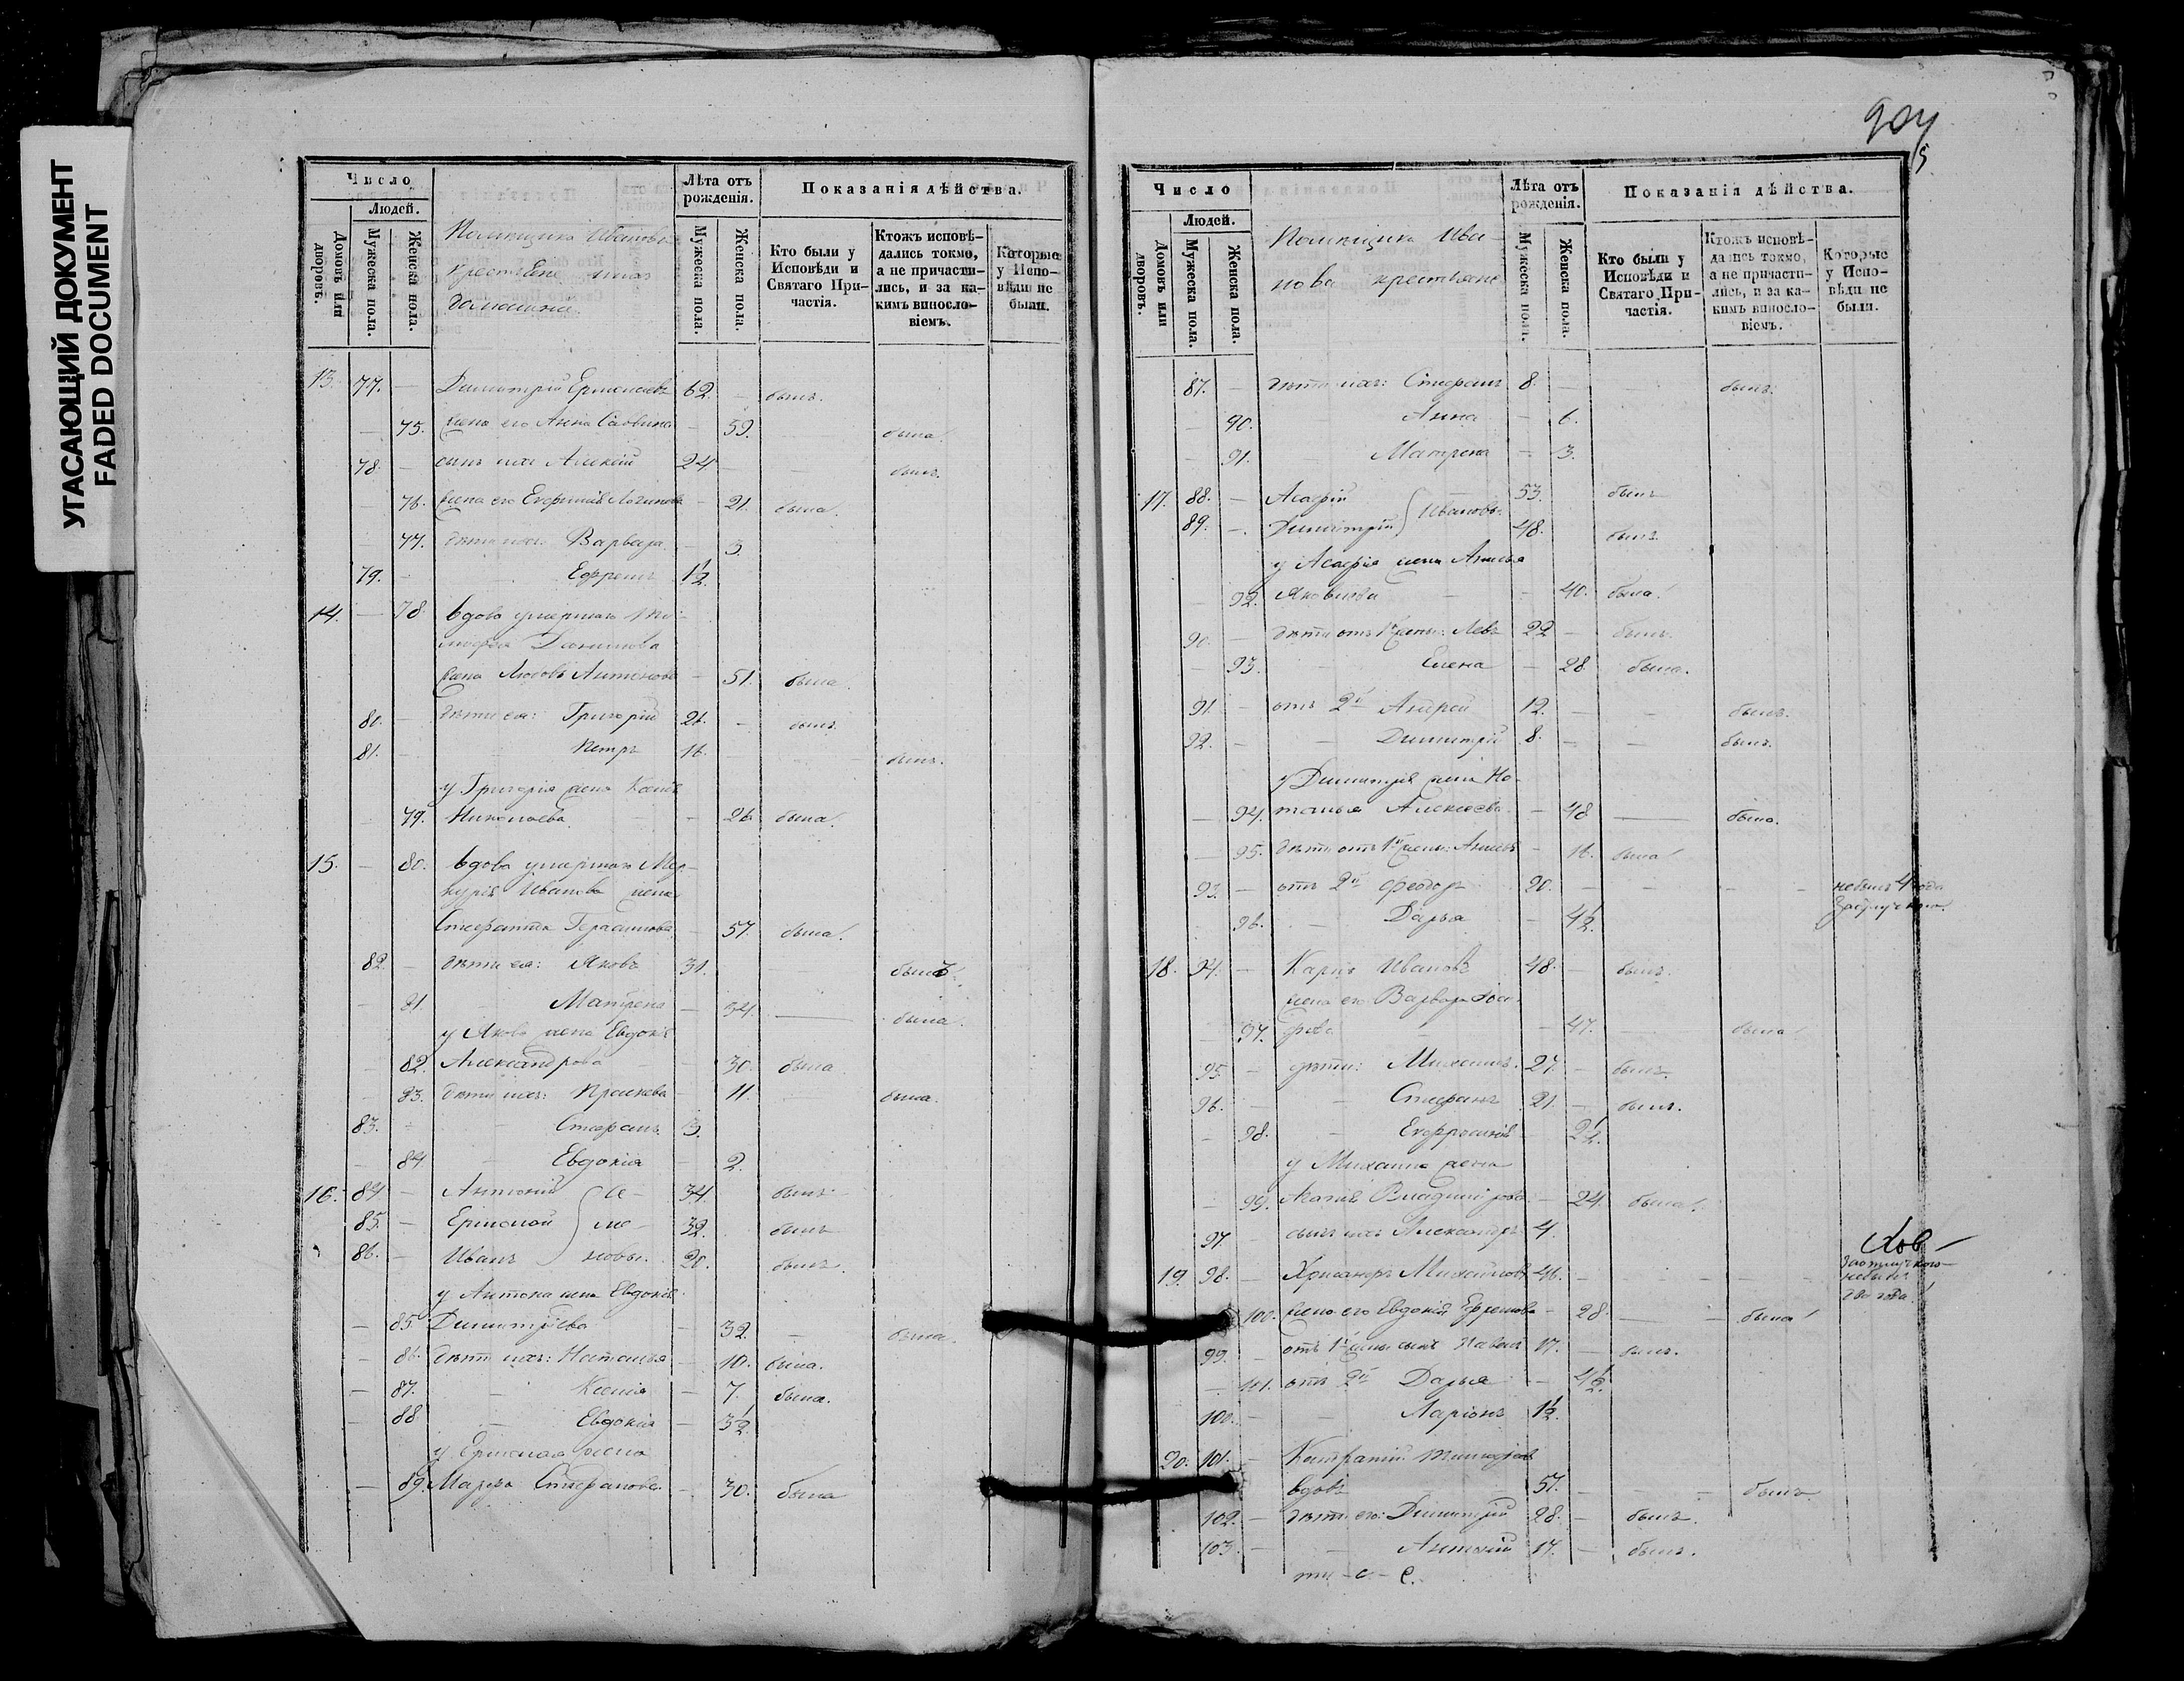 УГАСАЮЩИЙ ДОКУМЕНТ
FADED DOCUMENT
Число
Людей.
Домовъ или дворовъ.
Мужеска пола.
Женска пола.
Помѣщика Иванова
крестьяне
Лѣта отъ рожденія.
Мужеска пола.
Женска пола.
Показанія дѣйства.
Кто были у Исповѣди и Святаго При-частія.
Ктожъ исповѣ-дались токмо, а не причасти-лись, и за ка-кимъ винословіемъ.
Которые у Испо-вѣди не были.
13. 77. — Димитрій Ермолаевъ 62. — былъ.
— 75. жена его Анна Саввина — 59. была.
78. — сынъ ихъ Алексій 24 былъ.
— 76. жена его Евфимія Логинова — 21. была.
77. дѣти ихъ: Варвара — 3.
79. — Ефремъ 1½
14. — 78. вдова умершаго Ти-
мофея
жена Любовь Антонова — 51. была.
80. — дѣти ея: Григорій 26. — былъ.
81. — Петръ 16. былъ.
у Григорія жена Ксенія
79. Николаева — 26 была.
15. — 80. вдова умершаго Мер-
курія Иванова жена
Стефанида Герасимова — 57. была.
82. — дѣти ея: Яковъ 31. былъ.
— 81. Матрена — 34. была.
у Якова жена Евдокія
— 82. Александрова — 30. была.
— 83. дѣти ихъ: Прасковья — 11. была.
83. — Стефанъ 3.
— 84 Евдокія — 2.
16. 84 — Антоній Се- 34. былъ
85. — Ермолай ме- 32. былъ
86. — Иванъ новы. 20. былъ.
у Антона жена Евдокія
— 85 Димитріева — 32. — была.
— 86. дѣти ихъ: Наталья — 10. была.
— 87. — Ксенія — 7. была.
— 88 — Евдокія — 3½
у Ермолая жена
— 89. Марѳа Стефанова — 30. была
904
5
Число
Людей.
Домовъ или дворовъ.
Мужеска пола.
Женска пола.
Помѣщика Ива-
нова крестьяне
Лѣта отъ рожденія.
Мужеска пола.
Женска пола.
Показанія дѣйства.
Кто были у Исповѣди и Святаго При-частія.
Ктожъ исповѣ-дались токмо, а не причасти-лись, и за ка-кимъ винословіемъ.
Которые у Испо-вѣди не были.
87. — дѣти ихъ: Стефанъ 8. — былъ.
— 90. Анна — 6.
— 91. — Матрена — 3.
17. 88. — Асафій 53. былъ
89. — Димитрій Ивановы 48. былъ.
у Асафія жена Анисья
— 92. Яковлева — — 40. была.
90. — дѣти отъ 1й жены: Левъ 22 — былъ.
— 93. — Елена — 28 была.
91. — отъ 2й Андрей 12. — — былъ.
92. — — Димитрій 8. — — былъ.
у Димитрія жена На-
— 94. талья Алексѣева — 48 — была.
— 95. дѣти отъ 1й жены: Анисья — 16. была
93. — отъ 2й Ѳеодоръ 20. — — — не былъ 4 года за отлучкою.
96. — Дарья — 4½
18. 94. — Карпъ Ивановъ 48. — былъ.
жена его Варвара
— 97. — 47. — была
95. — дѣти: Михаилъ. 27. — былъ.
96. — — Стефанъ 21. — былъ.
— 98. — Евфросинія 2½
у Михаила жена
— 99. Агапія Владимірова — 24. была.
97. — сынъ ихъ Александръ 4.
19. 98. — Хрисанфъ Михайловъ 46. — — — за отлучкою не былъ два года.
100. жена его Евдокія Ефремова — 28. — — была
99. — отъ 1й жены сынъ Павелъ 17. — былъ.
— 101. отъ 2й Дарья — 4½
100. — Ларіонъ 1½
20. 101. — Тимоѳеевъ
вдовъ 57. — — — былъ.
102. — дѣти его: Димитрій 28. — былъ.
103. — — Антоній 17. — былъ.